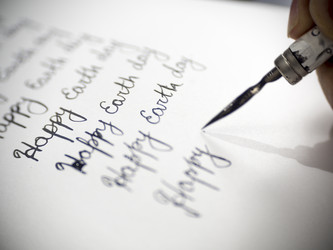 Earth day
Happy Earth day
Happy Earth day
Happy Earth day
Happy Earth day
Happy